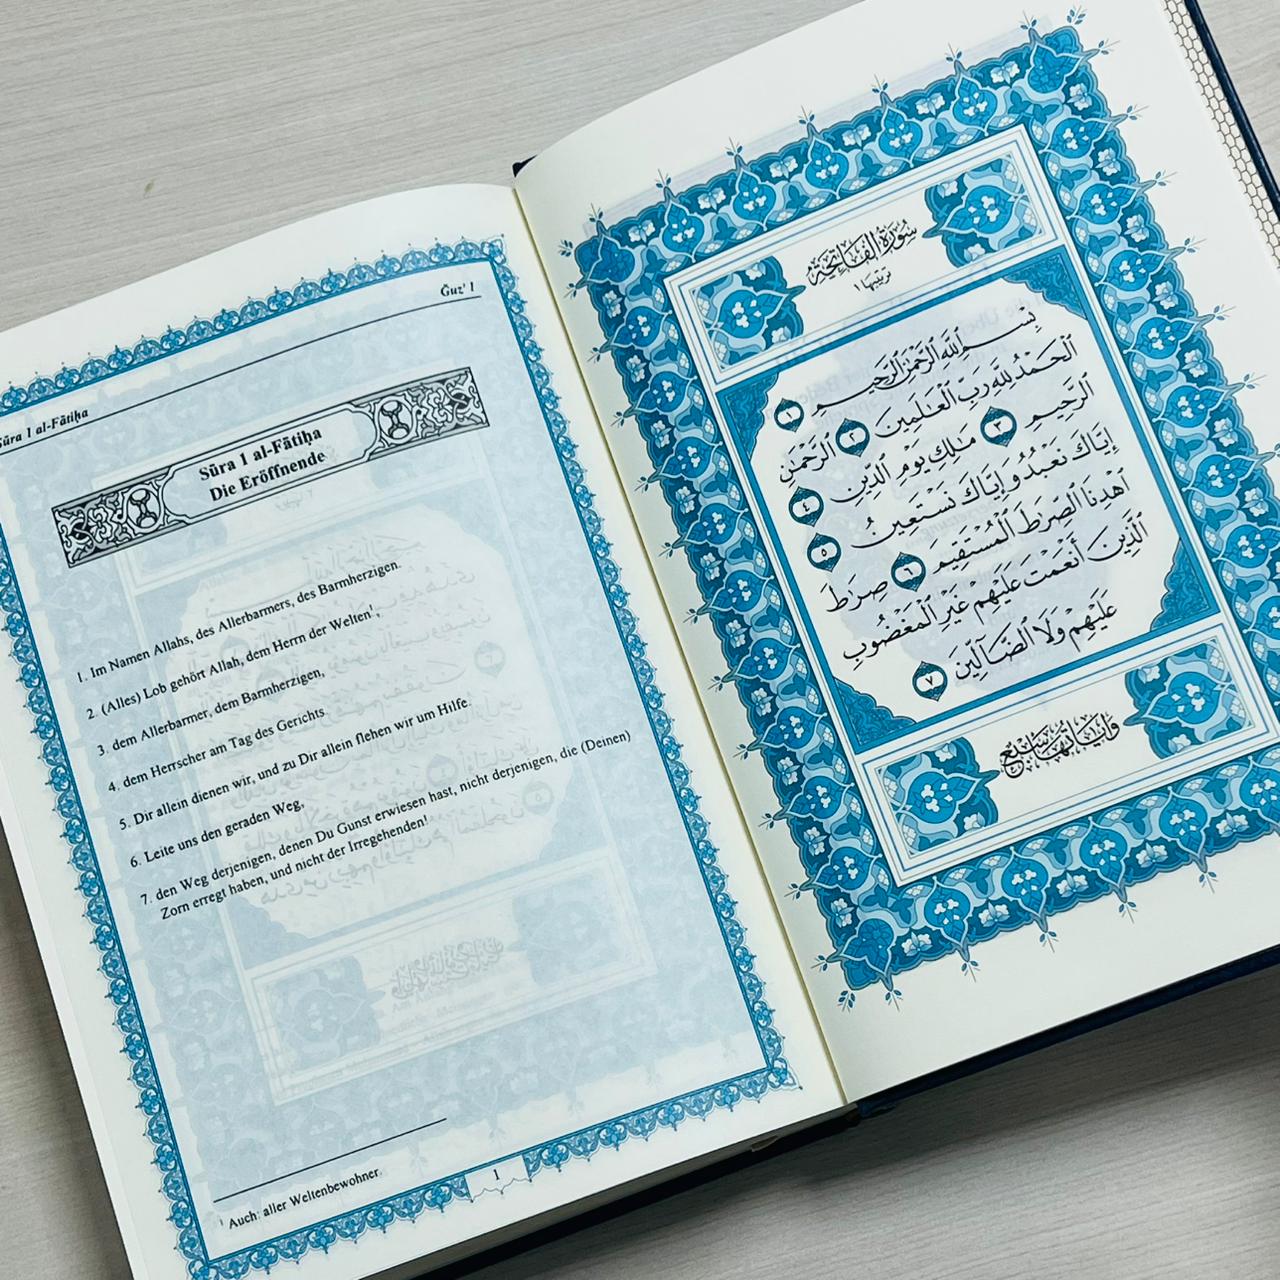 Sūra 1 al-Fātiḥa
Ǧuzʾ 1
Sūra 1 al-Fātiḥa
Die Eröffnende
1. Im Namen Allahs, des Allerbarmers, des Barmherzigen.
2. (Alles) Lob gehört Allah, dem Herrn der Welten¹,
3. dem Allerbarmer, dem Barmherzigen,
4. dem Herrscher am Tag des Gerichts.
5. Dir allein dienen wir, und zu Dir allein flehen wir um Hilfe.
6. Leite uns den geraden Weg,
7. den Weg derjenigen, denen Du Gunst erwiesen hast, nicht derjenigen, die (Deinen)
Zorn erregt haben, und nicht der Irregehenden!
¹ Auch: aller Weltenbewohner.
1
سُورَةُ الفَاتِحَةِ
ترتيبها ١
بِسْمِ ٱللَّهِ ٱلرَّحْمَٰنِ ٱلرَّحِيمِ ١
ٱلْحَمْدُ لِلَّهِ رَبِّ ٱلْعَٰلَمِينَ ٢ ٱلرَّحْمَٰنِ
ٱلرَّحِيمِ ٣ مَٰلِكِ يَوْمِ ٱلدِّينِ ٤
إِيَّاكَ نَعْبُدُ وَإِيَّاكَ نَسْتَعِينُ ٥
ٱهْدِنَا ٱلصِّرَٰطَ ٱلْمُسْتَقِيمَ ٦ صِرَٰطَ
ٱلَّذِينَ أَنْعَمْتَ عَلَيْهِمْ غَيْرِ ٱلْمَغْضُوبِ
عَلَيْهِمْ وَلَا ٱلضَّآلِّينَ ٧
وَآيَاتُهَا سَبْعٌ